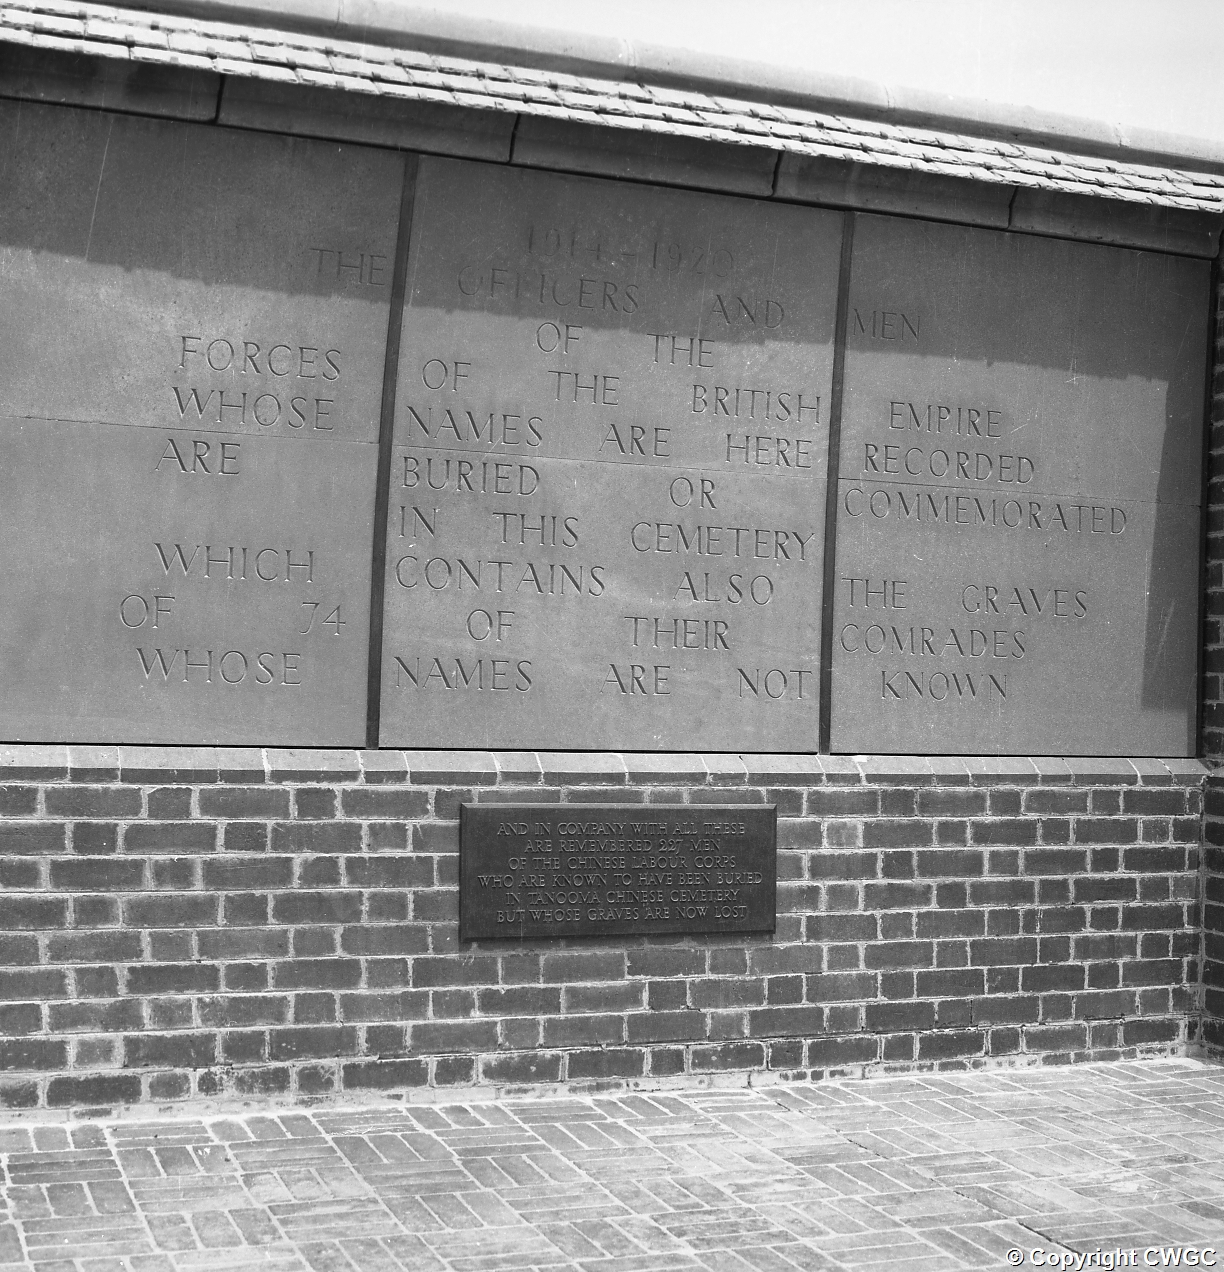 1914-1920
THE OFFICERS AND MEN
OF THE
FORCES OF THE BRITISH EMPIRE
WHOSE NAMES ARE HERE RECORDED
ARE BURIED OR COMMEMORATED
IN THIS CEMETERY
WHICH CONTAINS ALSO THE GRAVES
OF 74 OF THEIR COMRADES
WHOSE NAMES ARE NOT KNOWN
AND IN COMPANY WITH ALL THESE
ARE REMEMBERED 227 MEN
OF THE CHINESE LABOUR CORPS
WHO ARE KNOWN TO HAVE BEEN BURIED
IN TANOOMA CHINESE CEMETERY
BUT WHOSE GRAVES ARE NOW LOST
© Copyright CWGC